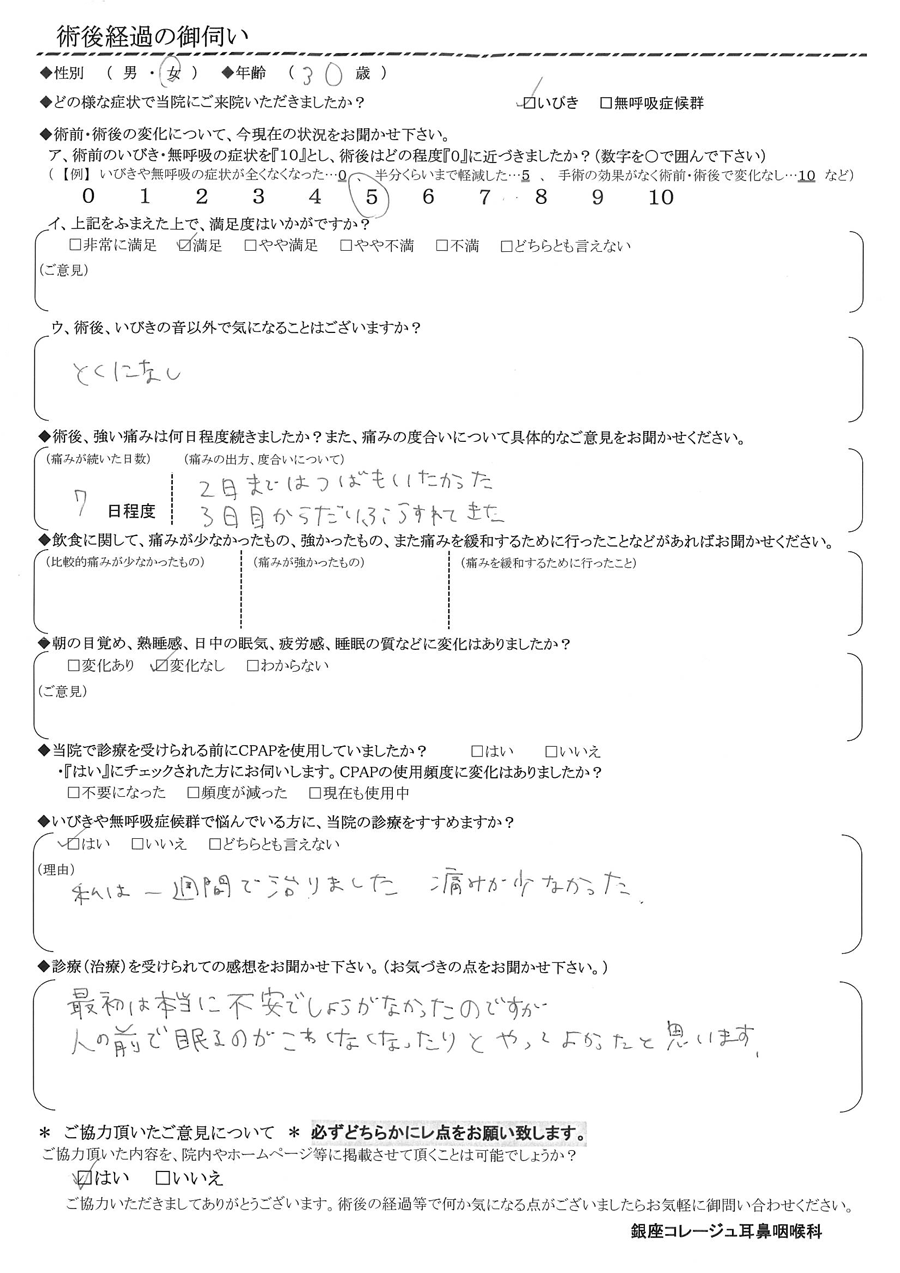 術後経過の御伺い
◆性別 (男・女) ◆年齢 (30歳)
◆どの様な症状で当院にご来院いただきましたか? ☑いびき □無呼吸症候群
◆術前・術後の変化について、今現在の状況をお聞かせ下さい。
ア、術前のいびき・無呼吸の症状を『10』とし、術後はどの程度『0』に近づきましたか?(数字を〇で囲んで下さい)
(【例】いびきや無呼吸の症状が全くなくなった…0、半分くらいまで軽減した…5、手術の効果がなく術前・術後で変化なし…10 など)
0 1 2 3 4 5 6 7 8 9 10
イ、上記をふまえた上で、満足度はいかがですか?
□非常に満足 ☑満足 □やや満足 □やや不満 □不満 □どちらとも言えない
(ご意見)
ウ、術後、いびきの音以外で気になることはございますか?
とくになし
◆術後、強い痛みは何日程度続きましたか?また、痛みの度合いについて具体的なご意見をお聞かせください。
(痛みが続いた日数) (痛みの出方、度合いについて)
2日まではつばもいたかった
7 日程度
3日目からだいぶうすれてきた
◆飲食に関して、痛みが少なかったもの、強かったもの、また痛みを緩和するために行ったことなどがあればお聞かせください。
(比較的痛みが少なかったもの) (痛みが強かったもの) (痛みを緩和するために行ったこと)
◆朝の目覚め、熟睡感、日中の眠気、疲労感、睡眠の質などに変化はありましたか?
□変化あり ☑変化なし □わからない
(ご意見)
◆当院で診療を受けられる前にCPAPを使用していましたか? □はい □いいえ
・『はい』にチェックされた方にお伺いします。CPAPの使用頻度に変化はありましたか?
□不要になった □頻度が減った □現在も使用中
◆いびきや無呼吸症候群で悩んでいる方に、当院の診療をすすめますか?
☑はい □いいえ □どちらとも言えない
(理由)
私は一週間で治りました 痛みが少なかった.
◆診療(治療)を受けられての感想をお聞かせ下さい。(お気づきの点をお聞かせ下さい。)
最初は本当に不安でしょうがなかったのですが
人の前で眠るのがこわくなくなったりとやってよかったと思います.
* ご協力頂いたご意見について * 必ずどちらかにレ点をお願い致します。
ご協力頂いた内容を、院内やホームページ等に掲載させて頂くことは可能でしょうか?
☑はい □いいえ
ご協力いただきましてありがとうございます。術後の経過等で何か気になる点がございましたらお気軽に御問い合わせください。
銀座コレージュ耳鼻咽喉科